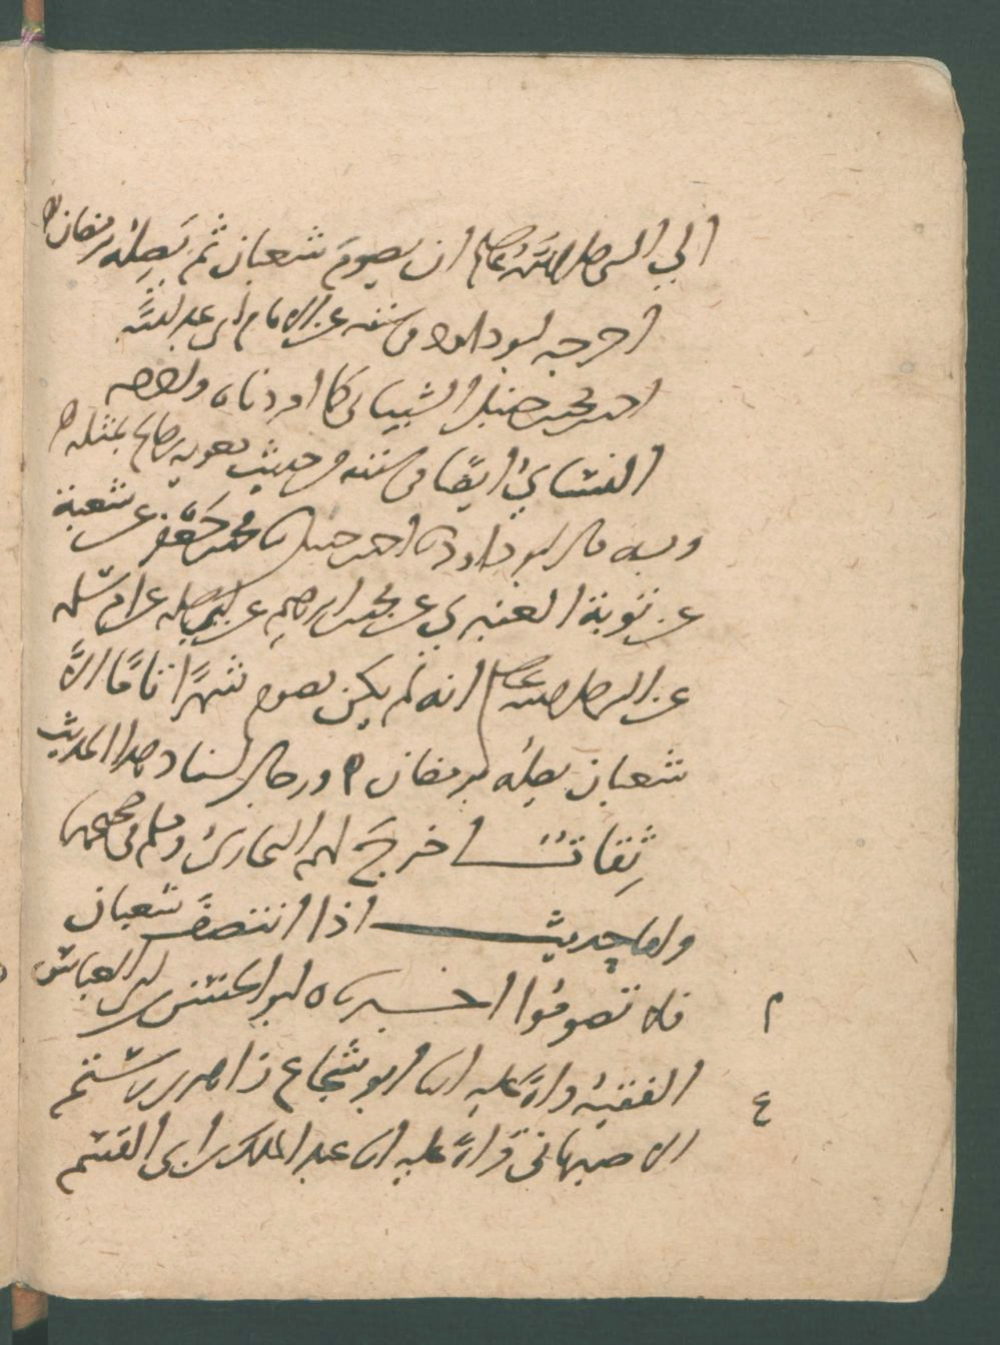 الي النبي صلى الله عليه ان يصوم شعبان ثم يصله برمضان ه
اخرجه ابو داود في سننه عن الامام ابي عبد الله
احمد بن محمد بن حنبل الشيباني كما اوردناه
النسائي ايضا في سننه من حديث معوية بن صالح بمثله ه
وبه قال ابو داود نا احمد بن حنبل نا محمد بن جعفر عن شعبة
عن توبة العنبري عن محمد بن ابرهيم عن ابي سلمه عن ام سلمه
عن النبي صلى الله عليه انه لم يكن يصوم شهرًا تامًا الا
شعبان يصله برمضان ه ورجال اسناد هذا الحديث
ثقات اخرج لهم البخاري ومسلم في صحيحهما
واما حديث اذا انتصف شعبان
فلا تصوموا اخبرناه ابو الحسن بن ابي العباس
م
الفقيه قراءةً عليه انا ابو شجاع زاهر بن رستم
ع
الاصبهاني قراءةً عليه انا عبد الملك بن ابي القسم